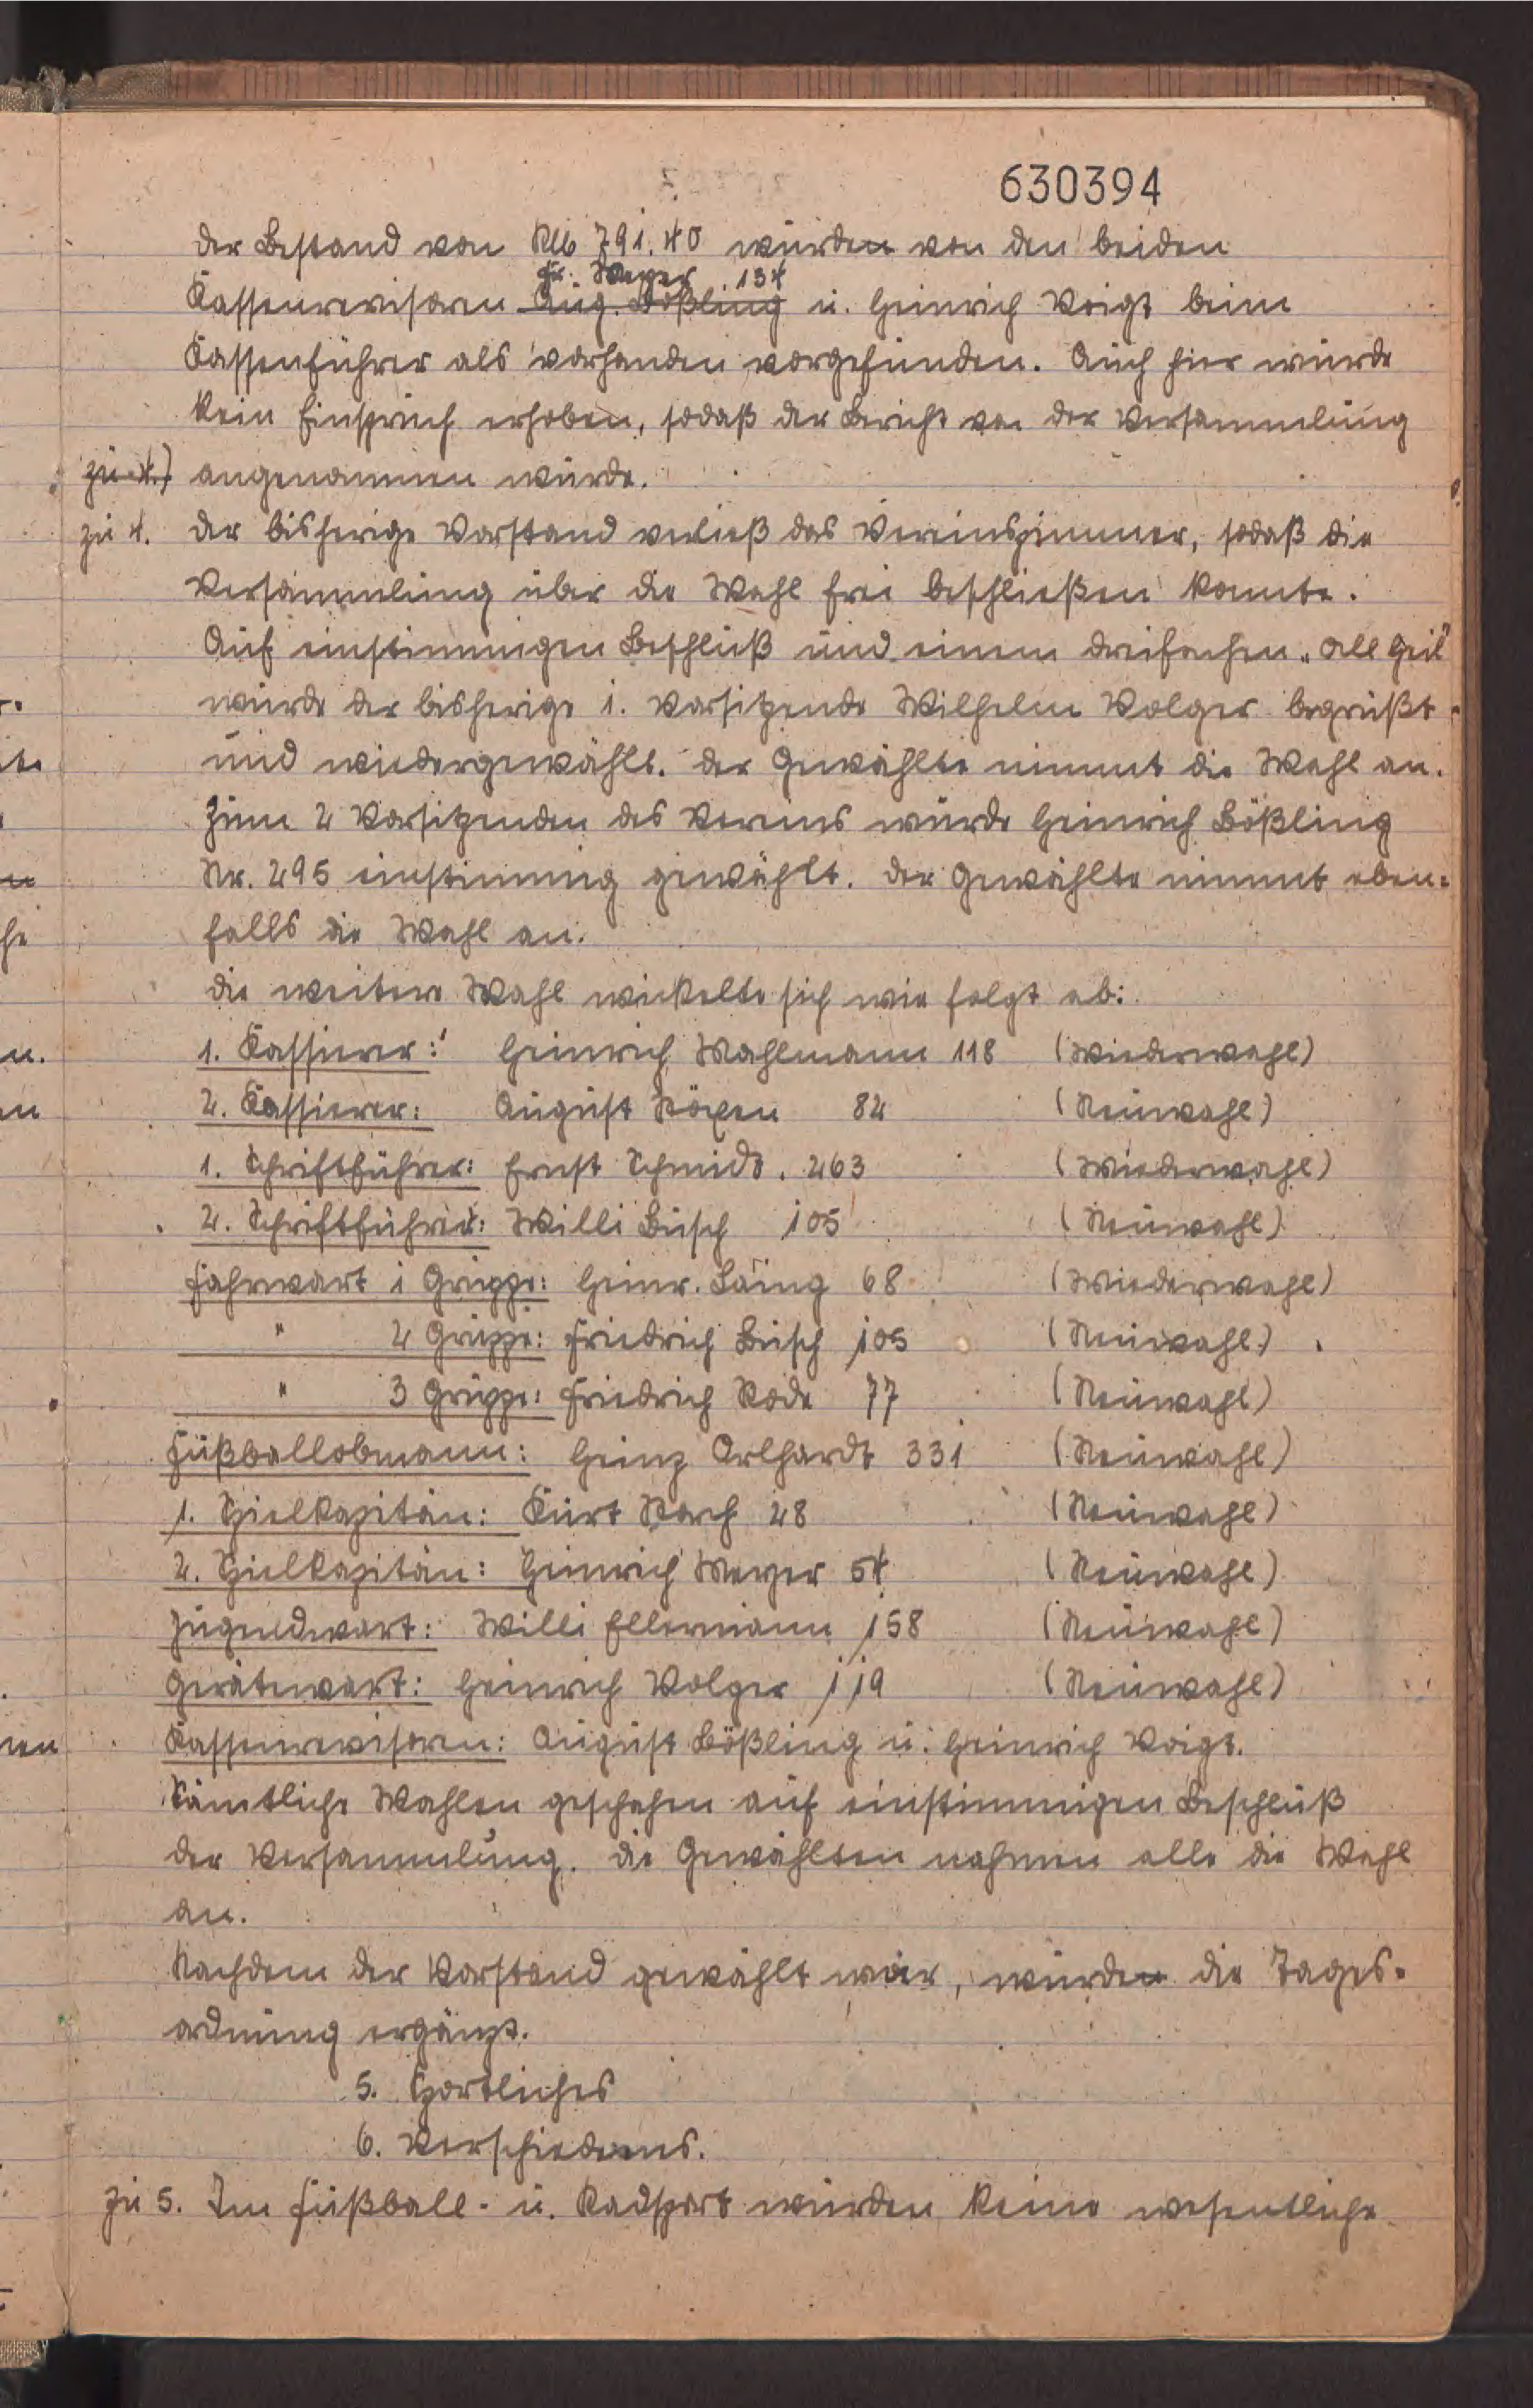 630394
Der Bestand von RM 791.40 wurden von den beiden
Fr. Meyer 134
Kassenrevisoren Aug. Bößling u. Heinrich Voigt beim
Kassenführer als vorhanden vorgefunden. Auch hier wurde
kein Einspruch erhoben, sodaß der Bericht von der Versammlung
zu 4.) angenommen wurde.
zu 4. Der bisherige Vorstand verließ das Vereinszimmer, sodaß die
Versammlung über die Wahl frei beschließen konnte.
Auf einstimmigen Beschluß und einem dreifachen „All Heil"
wurde der bisherige 1. Vorsitzende Wilhelm Volger begrüßt
und wiedergewählt. Der Gewählte nimmt die Wahl an.
Zum 2 Vorsitzenden des Vereins wurde Heinrich Bößling
Nr. 295 einstimmig gewählt. Der Gewählte nimmt eben=
falls die Wahl an.
Die weitere Wahl wickelte sich wie folgt ab:
1. Kassierer: Heinrich Mahlmann 118 (Wiederwahl)
2. Kassierer: August 82 (Neuwahl)
1. Schriftführer: Ernst Schmidt. 263 (Wiederwahl)
2. Schriftführer: Willi Busch 105 (Neuwahl)
Fahrwart 1 Gruppe: Heinr. Laing 68 (Wiederwahl)
" 2 Gruppe: Friedrich Busch 105 (Neuwahl)
" 3 Gruppe: Friedrich Rode 77 (Neuwahl)
Fußballobmann: Heinz Arlhardt 331 (Neuwahl)
1. Spielkapitän: Kurt 28 (Neuwahl)
2. Spielkapitän: Heinrich Meyer 54 (Neuwahl)
Jugendwart: Willi Ellermann 158 (Neuwahl)
Gerätewart: Heinrich Volger 119 (Neuwahl)
Kassenrevisoren: August Bößling u. Heinrich Voigt.
Sämtliche Wahlen geschahen auf einstimmigen Beschluß
der Versammlung. Die Gewählten nahmen alle die Wahl
an.
Nachdem der Vorstand gewählt war, wurden die Tages=
ordnung ergänzt.
5. Sportliches
6. Verschiedenes.
zu 5. Im Fußball- u. Radsport wurden keine wesentliche